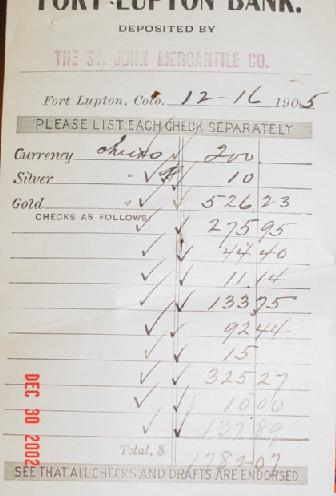 FORT LUPTON BANK.
DEPOSITED BY
THE ST. JOHN MERCANTILE CO.
Fort Lupton, Colo. 12-16 1905
PLEASE LIST EACH CHECK SEPARATELY
Currency checks 200
Silver " 10
Gold " 526 23
CHECKS AS FOLLOWS: 275 95
44 40
11 14
133 75
92 44
15
325 27
10 00
137 89
Total, $ 1782 07
SEE THAT ALL CHECKS AND DRAFTS ARE ENDORSED.
DEC 30 2002